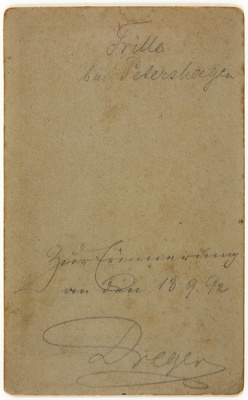 Frille
bei Petershagen
Zur Erinnerung
an den 13 9. 92
Dreger